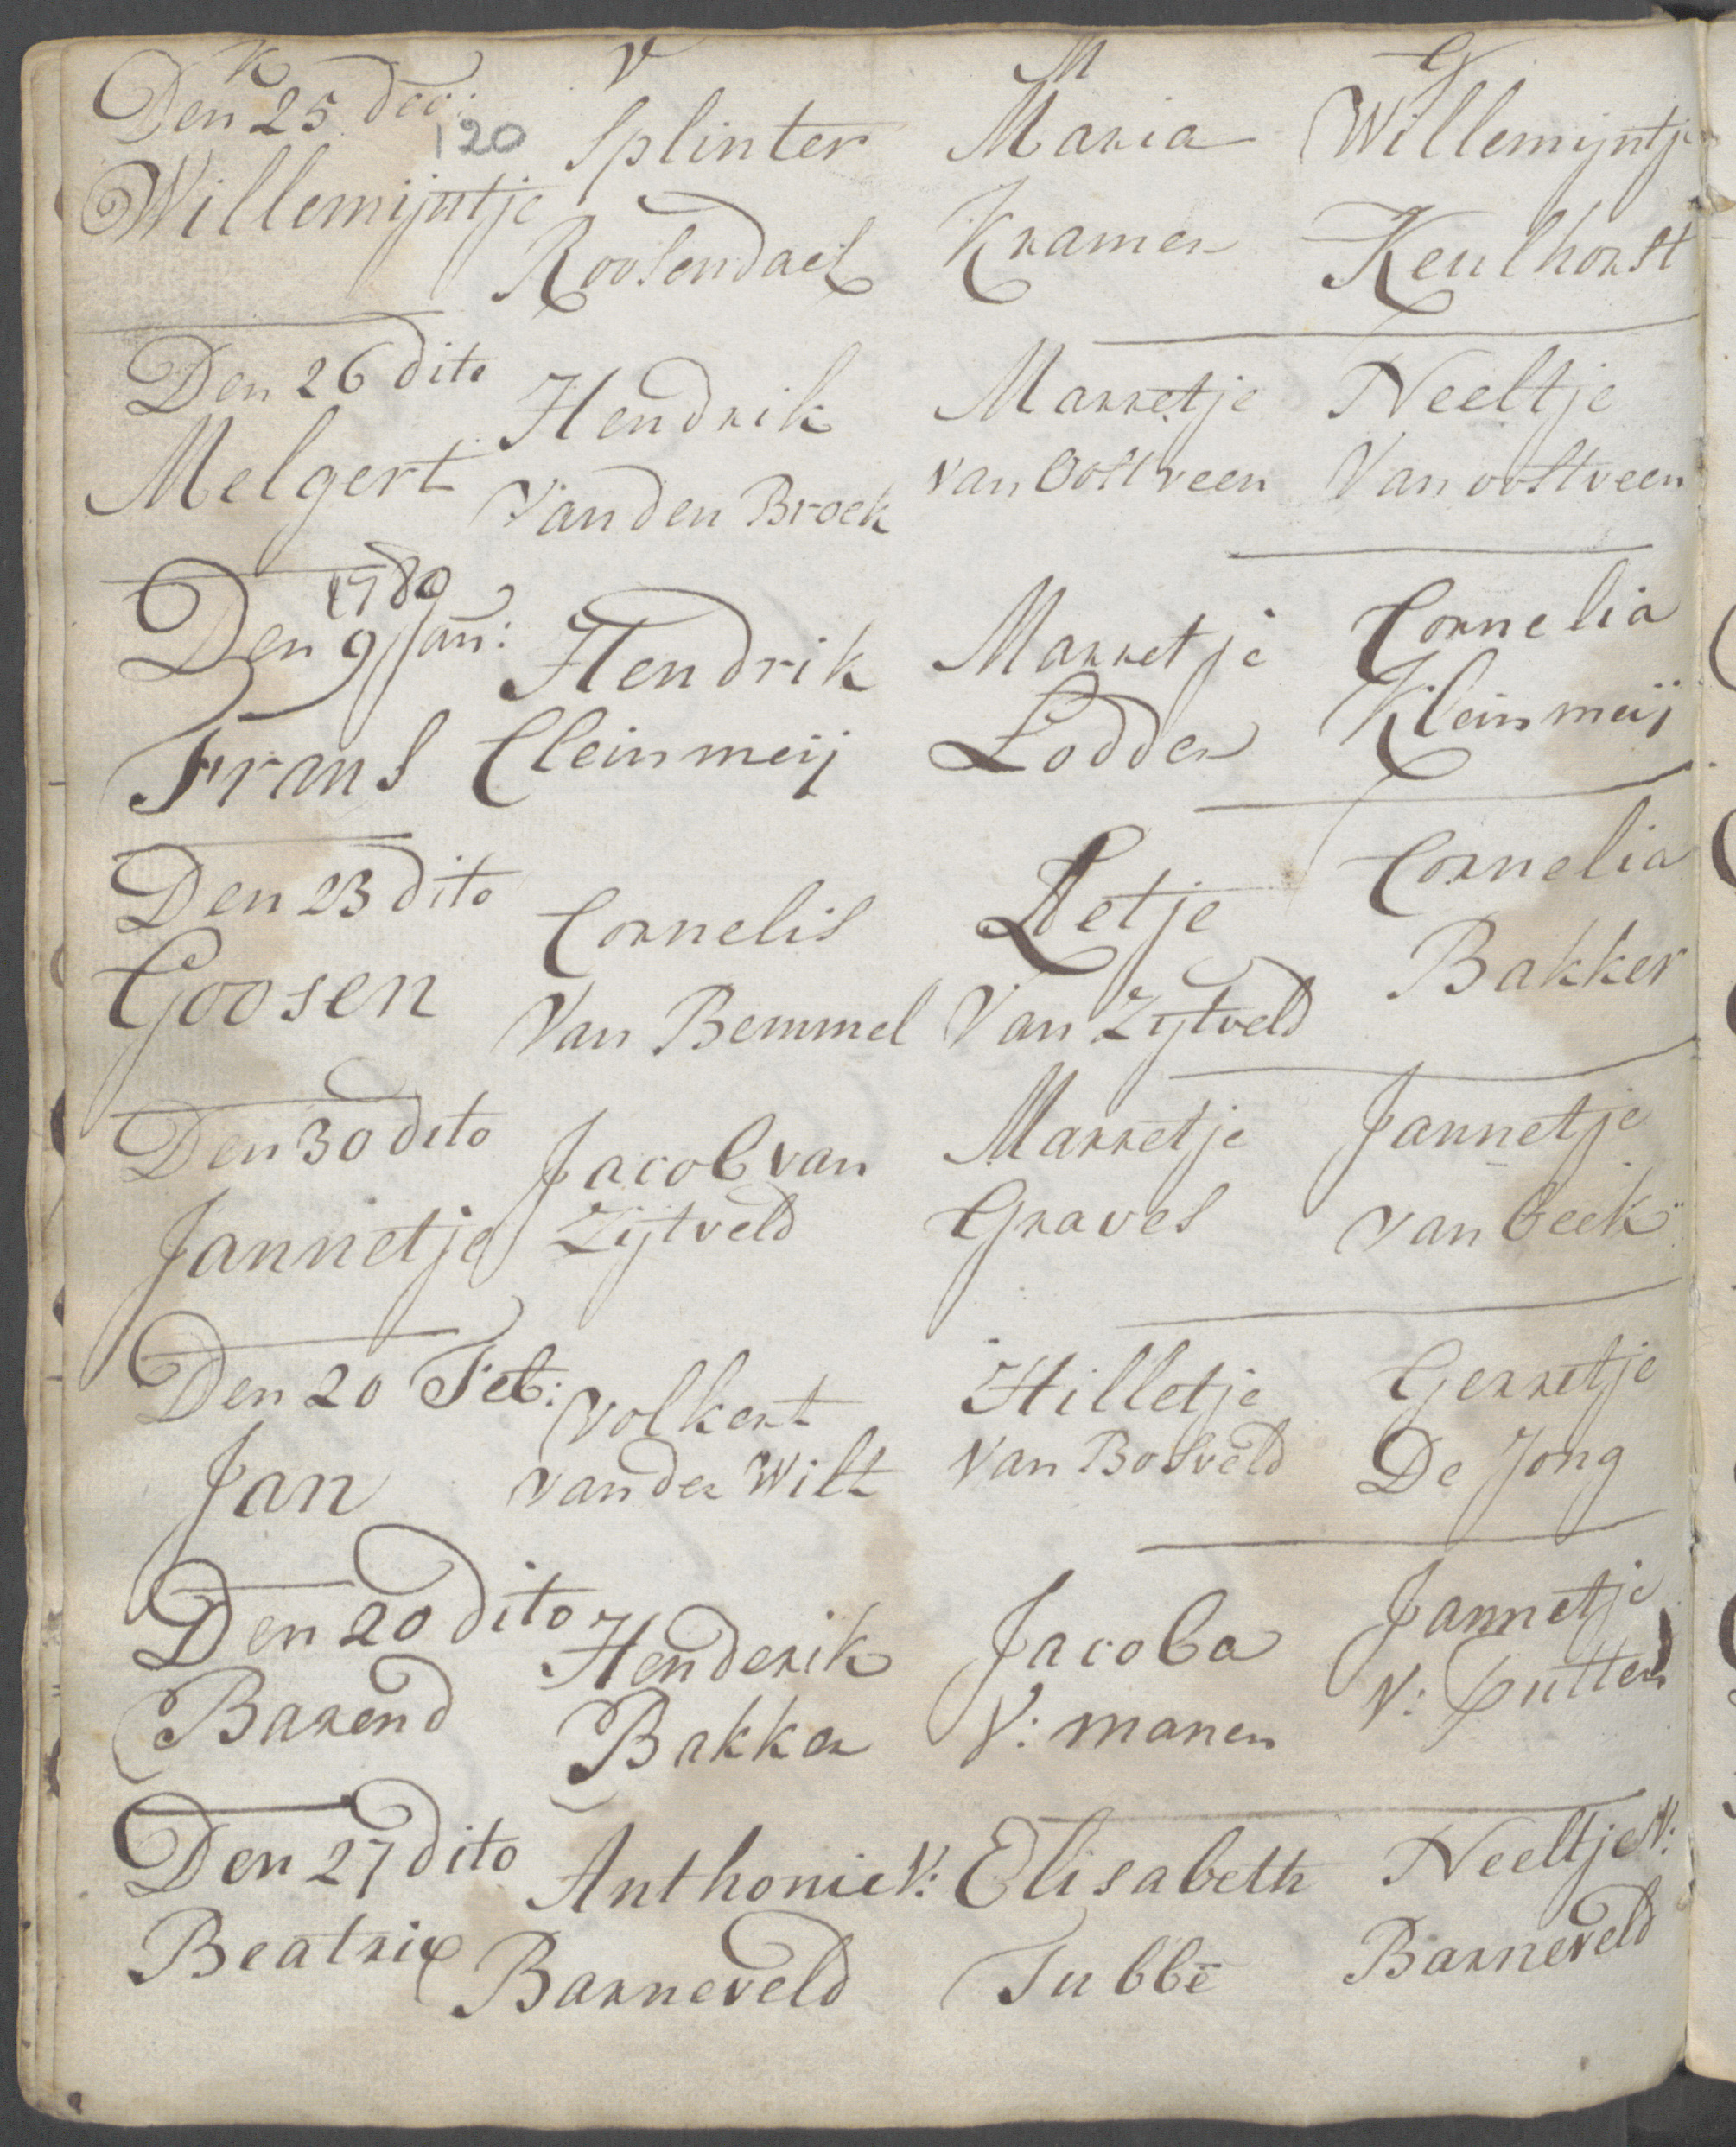 K V M G
Den 25 dec:
120
Willemijntje
Splinter
Roosendael
Maria
Kramer
Willemijntje
Keulhorst
Den 26 dito
Melgert
Hendrik
Van den Broek
Marretje
van Oostveen
Neeltje
Van oostveen
1780
Den 9 Jan:
Frans
Hendrik
Cleinmeij
Marretje
Lodder
Cornelia
Kleinmeij
Den 23 dito
Goosen
Cornelis
Van Bemmel
Van Zijtveld
Cornelia
Bakker
Den 30 dito
Jannetje
Jacob van
Zijtveld
Marretje
Graves
Jannetje
van beek
Den 20 Feb:
Jan
Volkert
van der Wilt
Hilletje
Van Bosveld
Gerretje
De Jong
Den 20 dito
Barend
Henderik
Bakker
Jacoba
V: manen
Jannetje
V: putten
Den 27 dito
Beatrix
Anthonie V:
Barneveld
Elisabeth
Tubbe
Neeltje V:
Barneveld